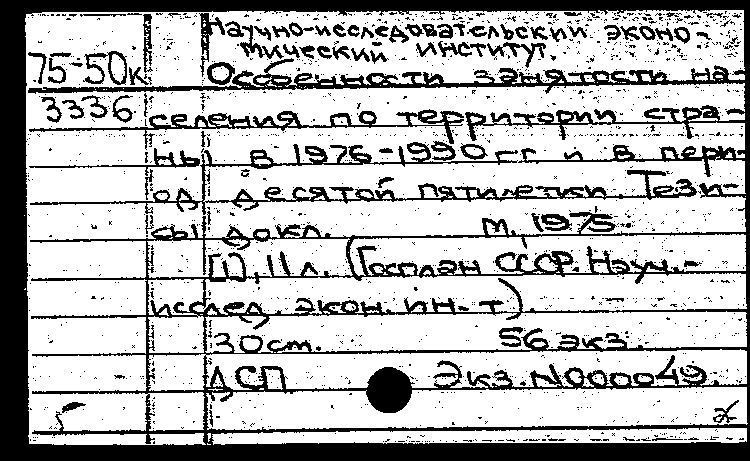 Научно-исследовательский эконо-
мический институт.
75-50к Особенности занятости на-
3336 селения по территории стра-
ны в 1976-1990 гг и в пери-
од десятой пятилетки. Тези-
сы докл. М., 1975.
[1], 11 л. (Госплан СССР. Науч.-
исслед. экон. ин-т).
30 ст. 56 экз.
ДСП Экз. №000049.